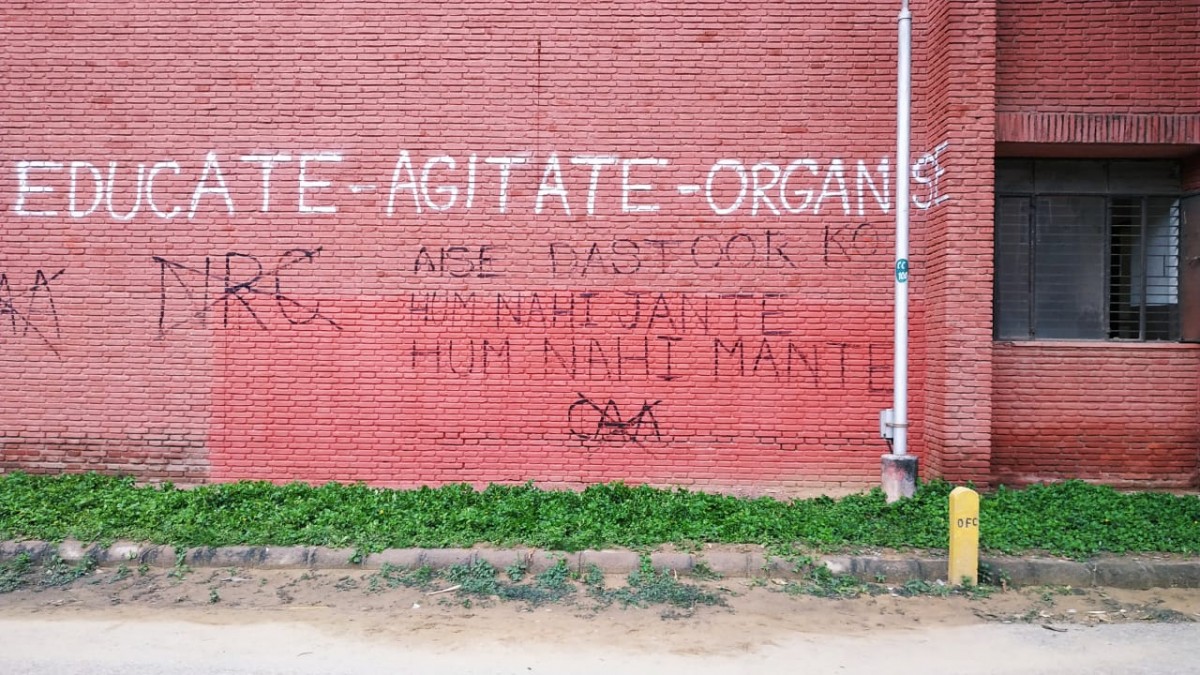 EDUCATE-AGITATE-ORGANISE
AISE DASTOOR KO
NRC
HUM NAHI JANTE
HUM NAHI MANTE
CAA
OFC